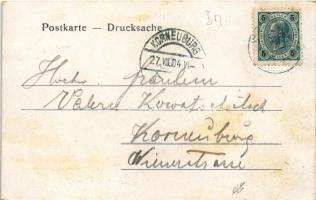 Postkarte — Drucksache
KORNEUBURG
27.VII.04
Hochw. Fräulein
Valerie
Korneuburg
Wienerstrasse